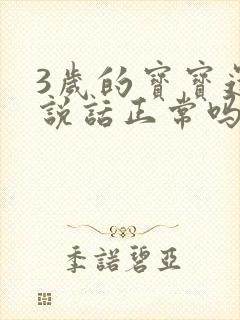 3歲的寶寶
說話正常吗
季諾碧亞